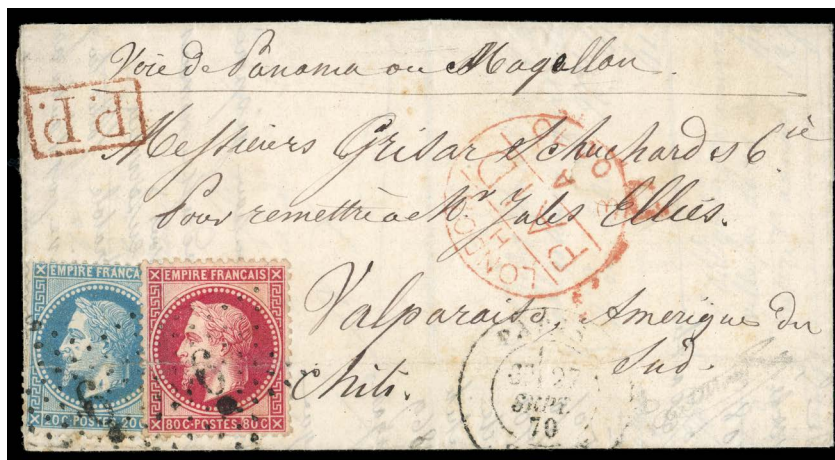 Voie de Panama ou Magellan.
P.P.
Messieurs Grisar Schuchard & Cie
Pour remettre à Mr Jules Elliès.
LONDON
PAID
Valparaiso, Amérique du Sud.
Chili.
EMPIRE FRANÇAIS
20C POSTES 20C
EMPIRE FRANÇAIS
80C POSTES 80C
3
3
SEPT.
70